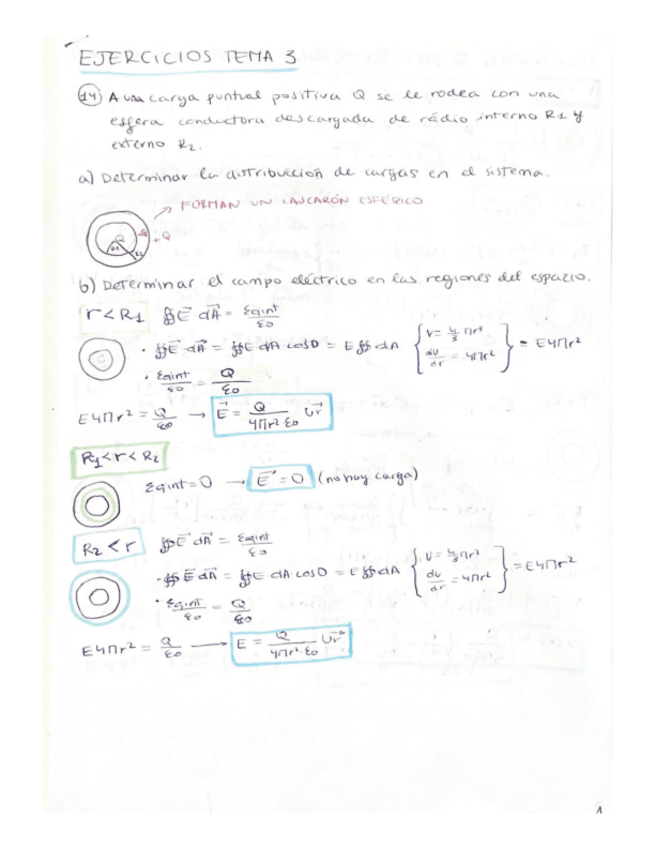 EJERCICIOS TEMA 3
14) A una carga puntual positiva Q se le rodea con una
esfera conductora descargada de rádio interno R1 y
externo R2.
a) Determinar la distribución de cargas en el sistema.
→ FORMAN UN CASCARÓN ESFÉRICO
Q -Q +Q
R1 R2
b) Determinar el campo eléctrico en las regiones del espacio.
r < R1 ∯E⃗ dA⃗ = Σqint/ε0
· ∯E⃗ dA⃗ = ∯E dA cos0 = E ∯dA { V = 4/3 πr³ dv/dr = 4πr² } = E4πr²
· Σqint/ε0 = Q/ε0
E4πr² = Q/ε0 → E⃗ = Q/4πr²ε0 Ur⃗
R1 < r < R2
Σqint = 0 → E⃗ = 0 (no hay carga)
R2 < r ∯E⃗ dA⃗ = Σqint/ε0
· ∯E⃗ dA⃗ = ∯E dA·cos0 = E ∯dA { V = 4/3 πr² dv/dr = 4πr² } = E4πr²
· Σqint/ε0 = Q/ε0
E4πr² = Q/ε0 → E = Q/4πr²·ε0 Ur⃗
1